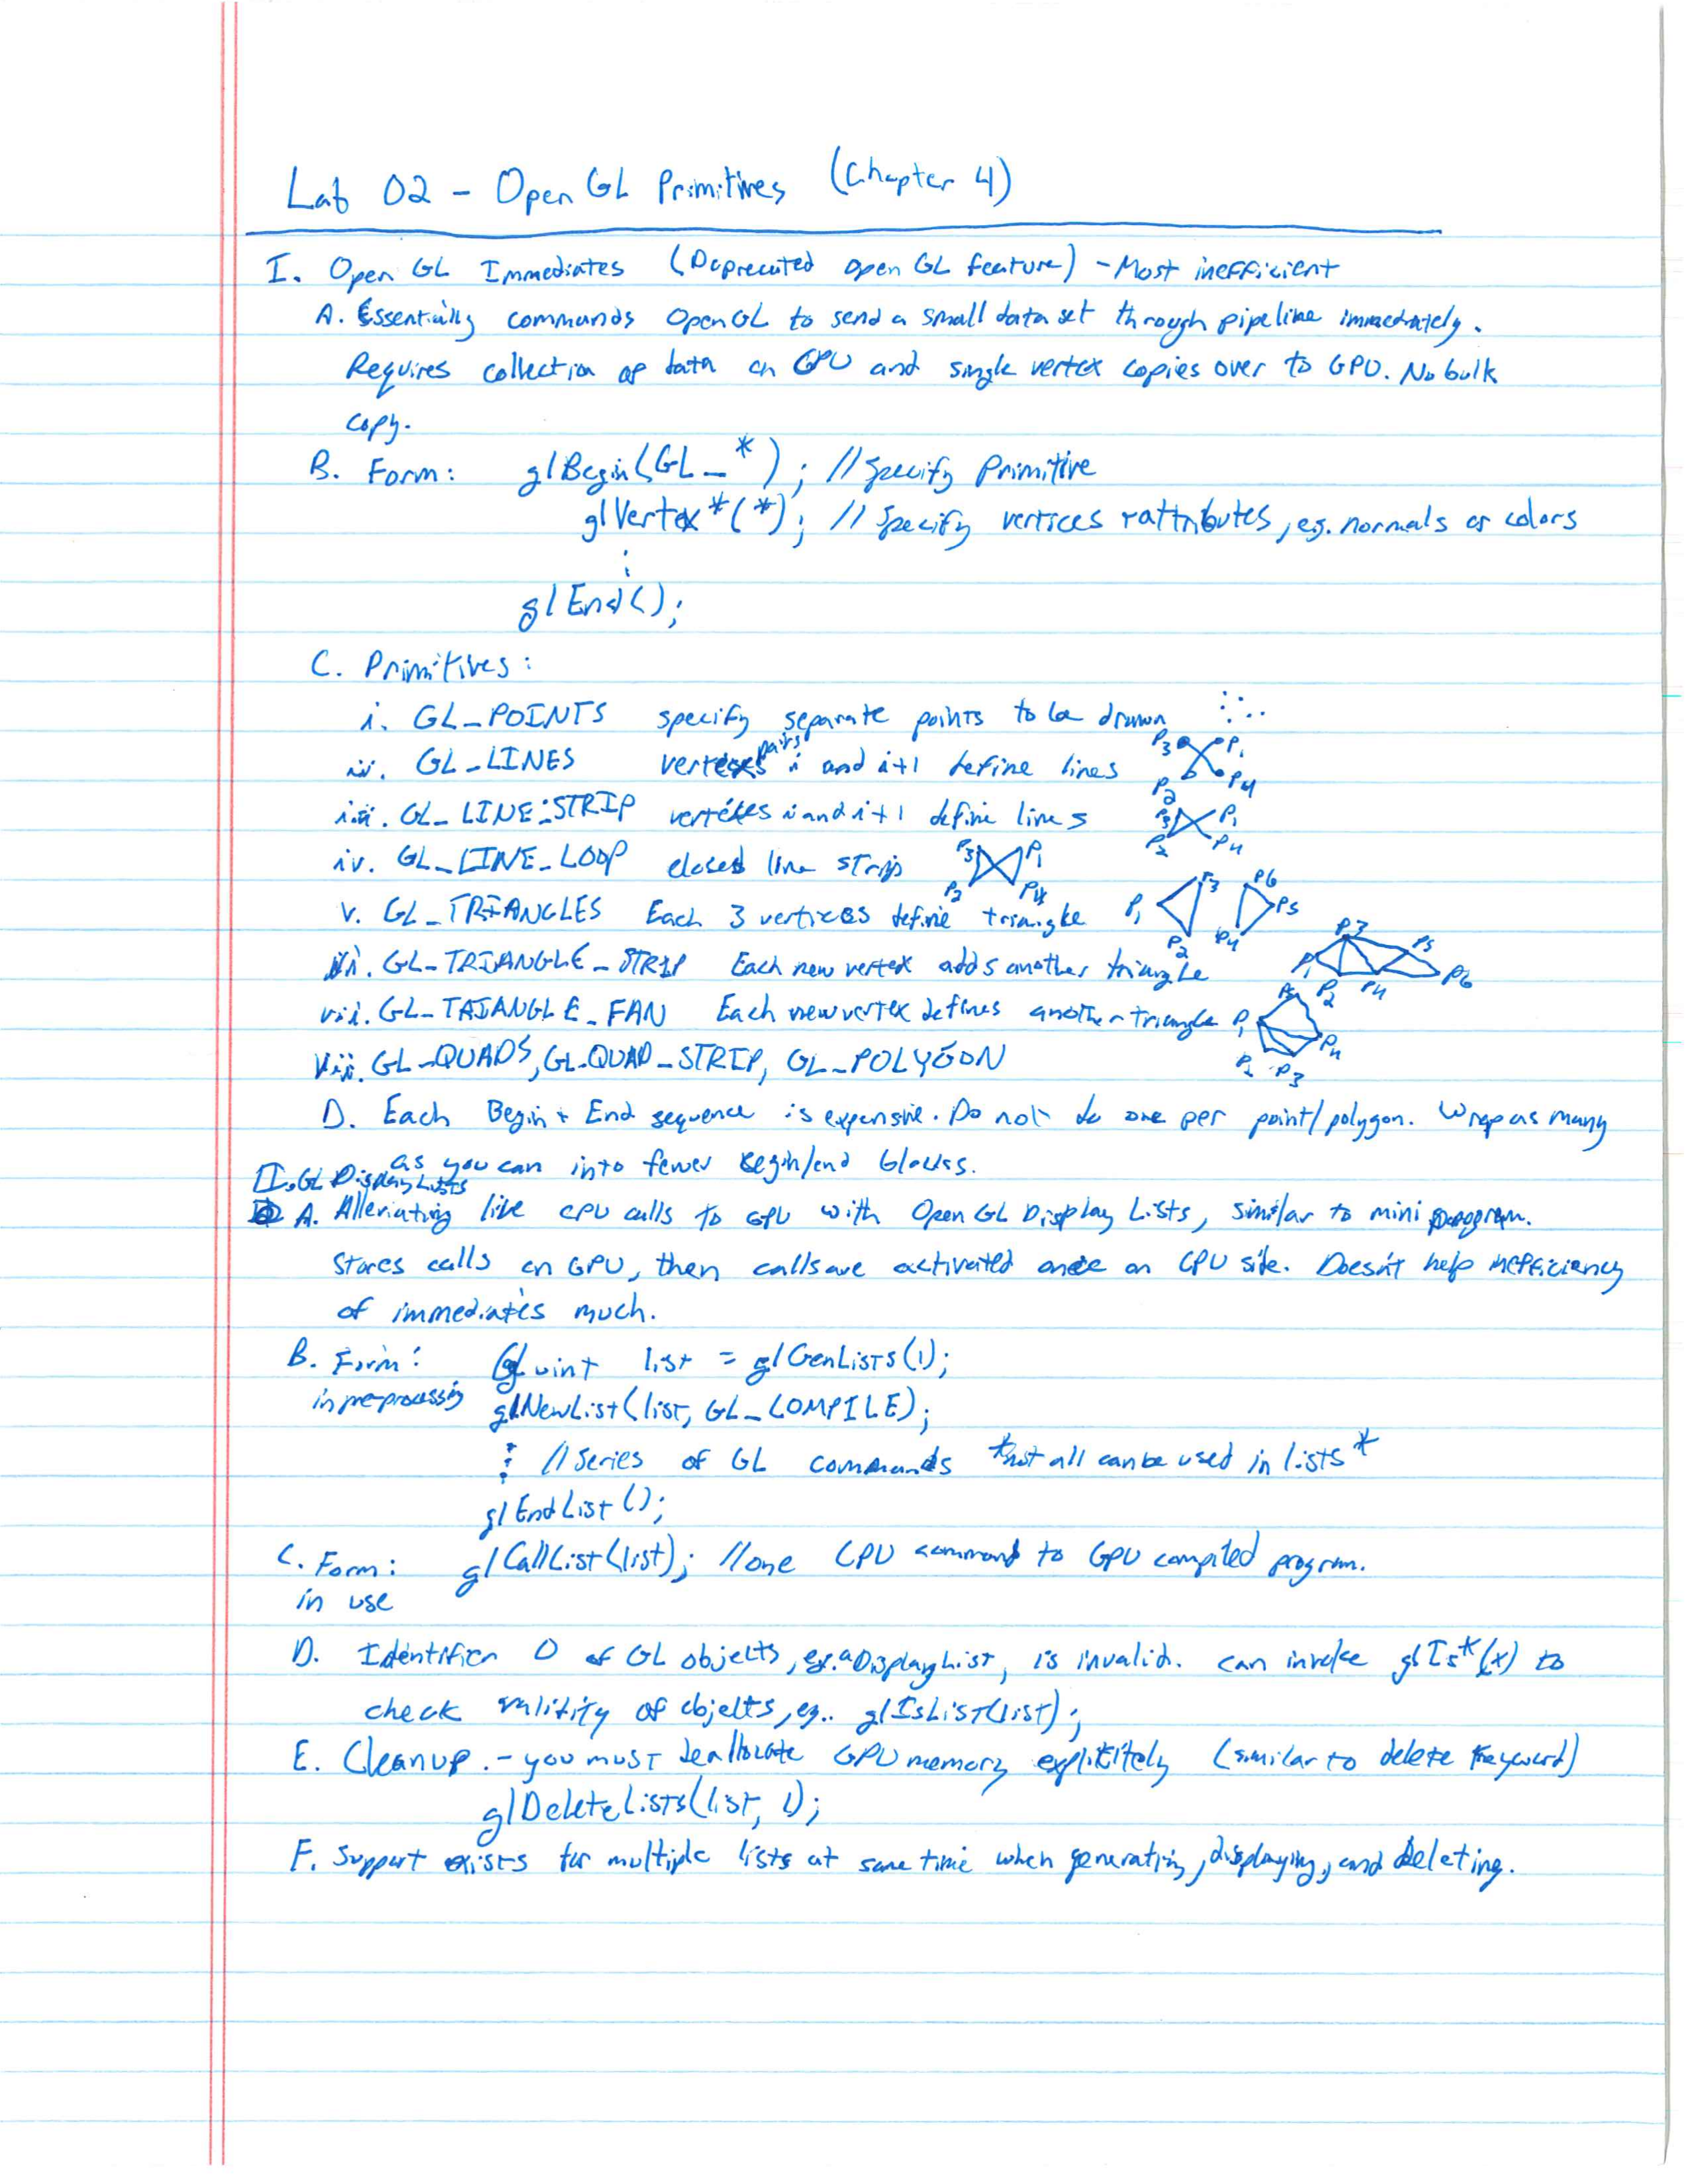 Lab 02 - Open GL Primitives (Chapter 4)
I. Open GL Immediates (Deprecated open GL feature) - Most inefficient
A. Essentially commands OpenGL to send a small data set through pipeline immediately.
Requires collection of data on CPU and single vertex copies over to GPU. No bulk
copy.
B. Form: glBegin(GL_*); //Specify Primitive
glVertex*(*); // Specify vertices + attributes, eg. normals or colors
glEnd();
C. Primitives:
i. GL_POINTS specify separate points to be drawn
ii. GL_LINES vertex pairs i and i+1 define lines P3 P1 P2 P4
iii. GL_LINE_STRIP vertices i and i+1 define lines P3 P1 P2 P4
iv. GL_LINE_LOOP closed line strip P3 P1 P2 P4
v. GL_TRIANGLES Each 3 vertices define triangle P1 P3 P2 P6 P5 P4
vi. GL_TRIANGLE_STRIP Each new vertex adds another triangle P1 P3 P5 P2 P4 P6
vii. GL_TRIANGLE_FAN Each new vertex defines another triangle P1 P5 P4 P2 P3
viii. GL_QUADS, GL_QUAD_STRIP, GL_POLYGON
D. Each Begin + End sequence is expensive. Do not do one per point/polygon. Wrap as many
as you can into fewer begin/end blocks.
II. GL Display Lists
A. Alleviating live CPU calls to GPU with OpenGL Display Lists, similar to mini program.
Stores calls on GPU, then calls are activated once on CPU site. Doesn't help inefficiency
of immediates much.
B. Form: GLuint list = glGenLists(1);
in pre-processing glNewList(list, GL_COMPILE);
// Series of GL commands *not all can be used in lists*
glEndList();
C. Form: glCallList(list); //one CPU command to GPU compiled program.
in use
D. Identifier 0 of GL objects, ex. a DisplayList, is invalid. can invoke glIs*(x) to
check validity of objects, eg.. glIsList(list);
E. Cleanup. - you must deallocate GPU memory explicitely (similar to delete keyword)
glDeleteLists(list, 1);
F. Support exists for multiple lists at same time when generating, displaying, and deleting.